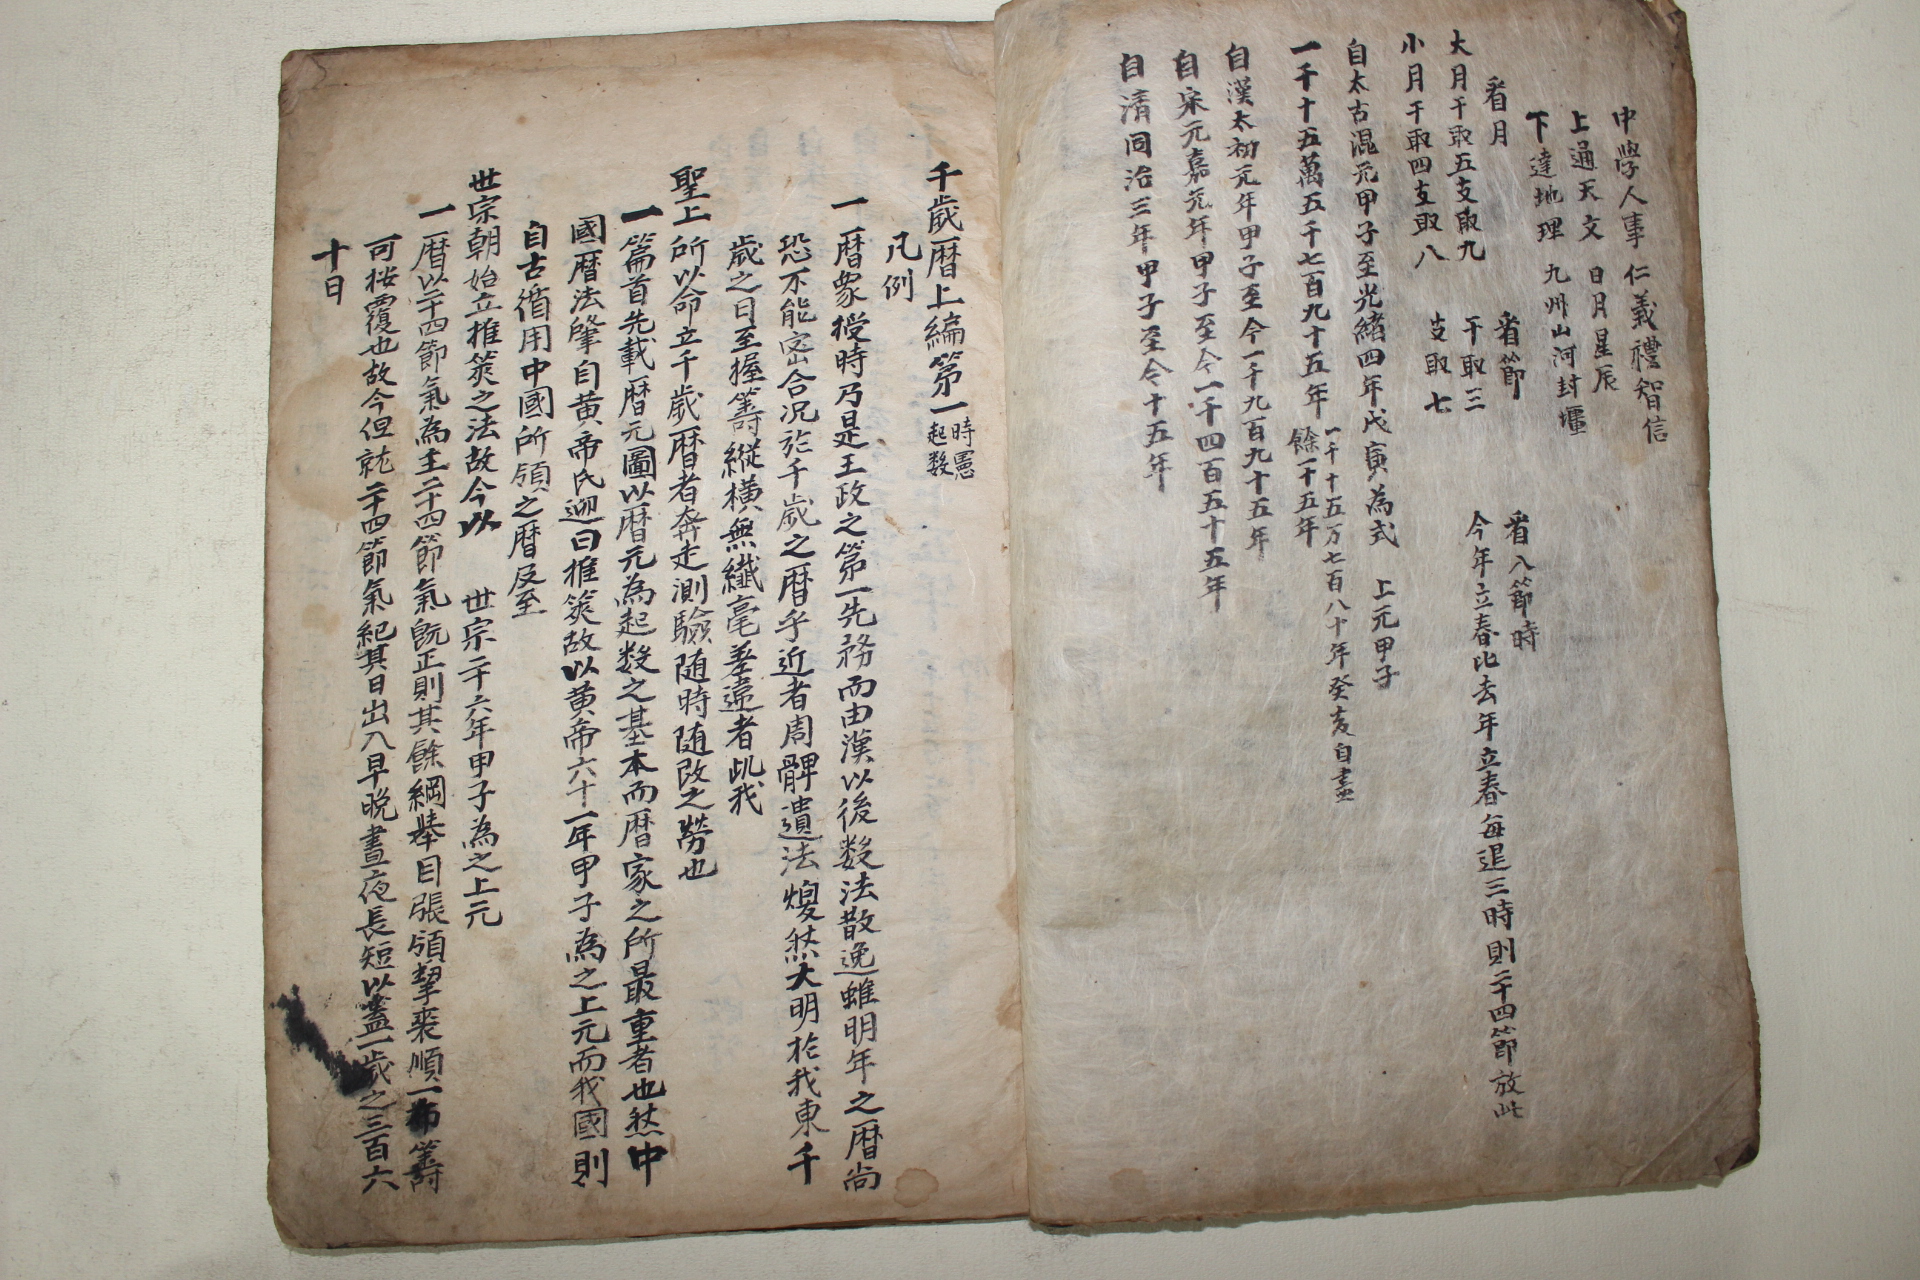 中學人事 仁義禮智信
上通天文 日月星辰
下達地理 九州山河封壃
看月
大月干取五支取九
小月干取四支取八
看節
干取三
支取七
看八節時
今年立春比去年立春每退三時則二十四節放此
自太古混元甲子至光緒四年戊寅為式 上元甲子
一千十五萬五千七百九十五年
一千十五万七百八十年癸亥自盡
餘一十五年
自漢太初元年甲子至今一千九百九十五年
自宋元嘉元年甲子至今一千四百五十五年
自清同治三年甲子至今十五年
千歲曆上編第一 時憲起数
凡例
一曆象授時乃是王政之第一先務而由漢以後数法散逸雖明年之曆尚
恐不能密合況於千歲之曆乎近者周髀遺法煥然大明於我東千
歲之日至握籌縱橫無纖毫差違者此我
聖上所以命立千歲曆者奔走測驗随時随改之勞也
一篇首先載曆元圖以曆元為起数之基本而曆家之所最重者也然中
國曆法肇自黃帝氏迎日推筴故以黃帝六十一年甲子為之上元而我國則
自古循用中國所頒之曆及至
世宗朝始立推筴之法故今以 世宗二十六年甲子為之上元
一曆以二十四節氣為主二十四節氣旣正則其餘綱舉目張領挈裘順一布籌
可按覆也故今但就二十四節氣紀其日出入早晚晝夜長短以盡一歲之三百六
十日